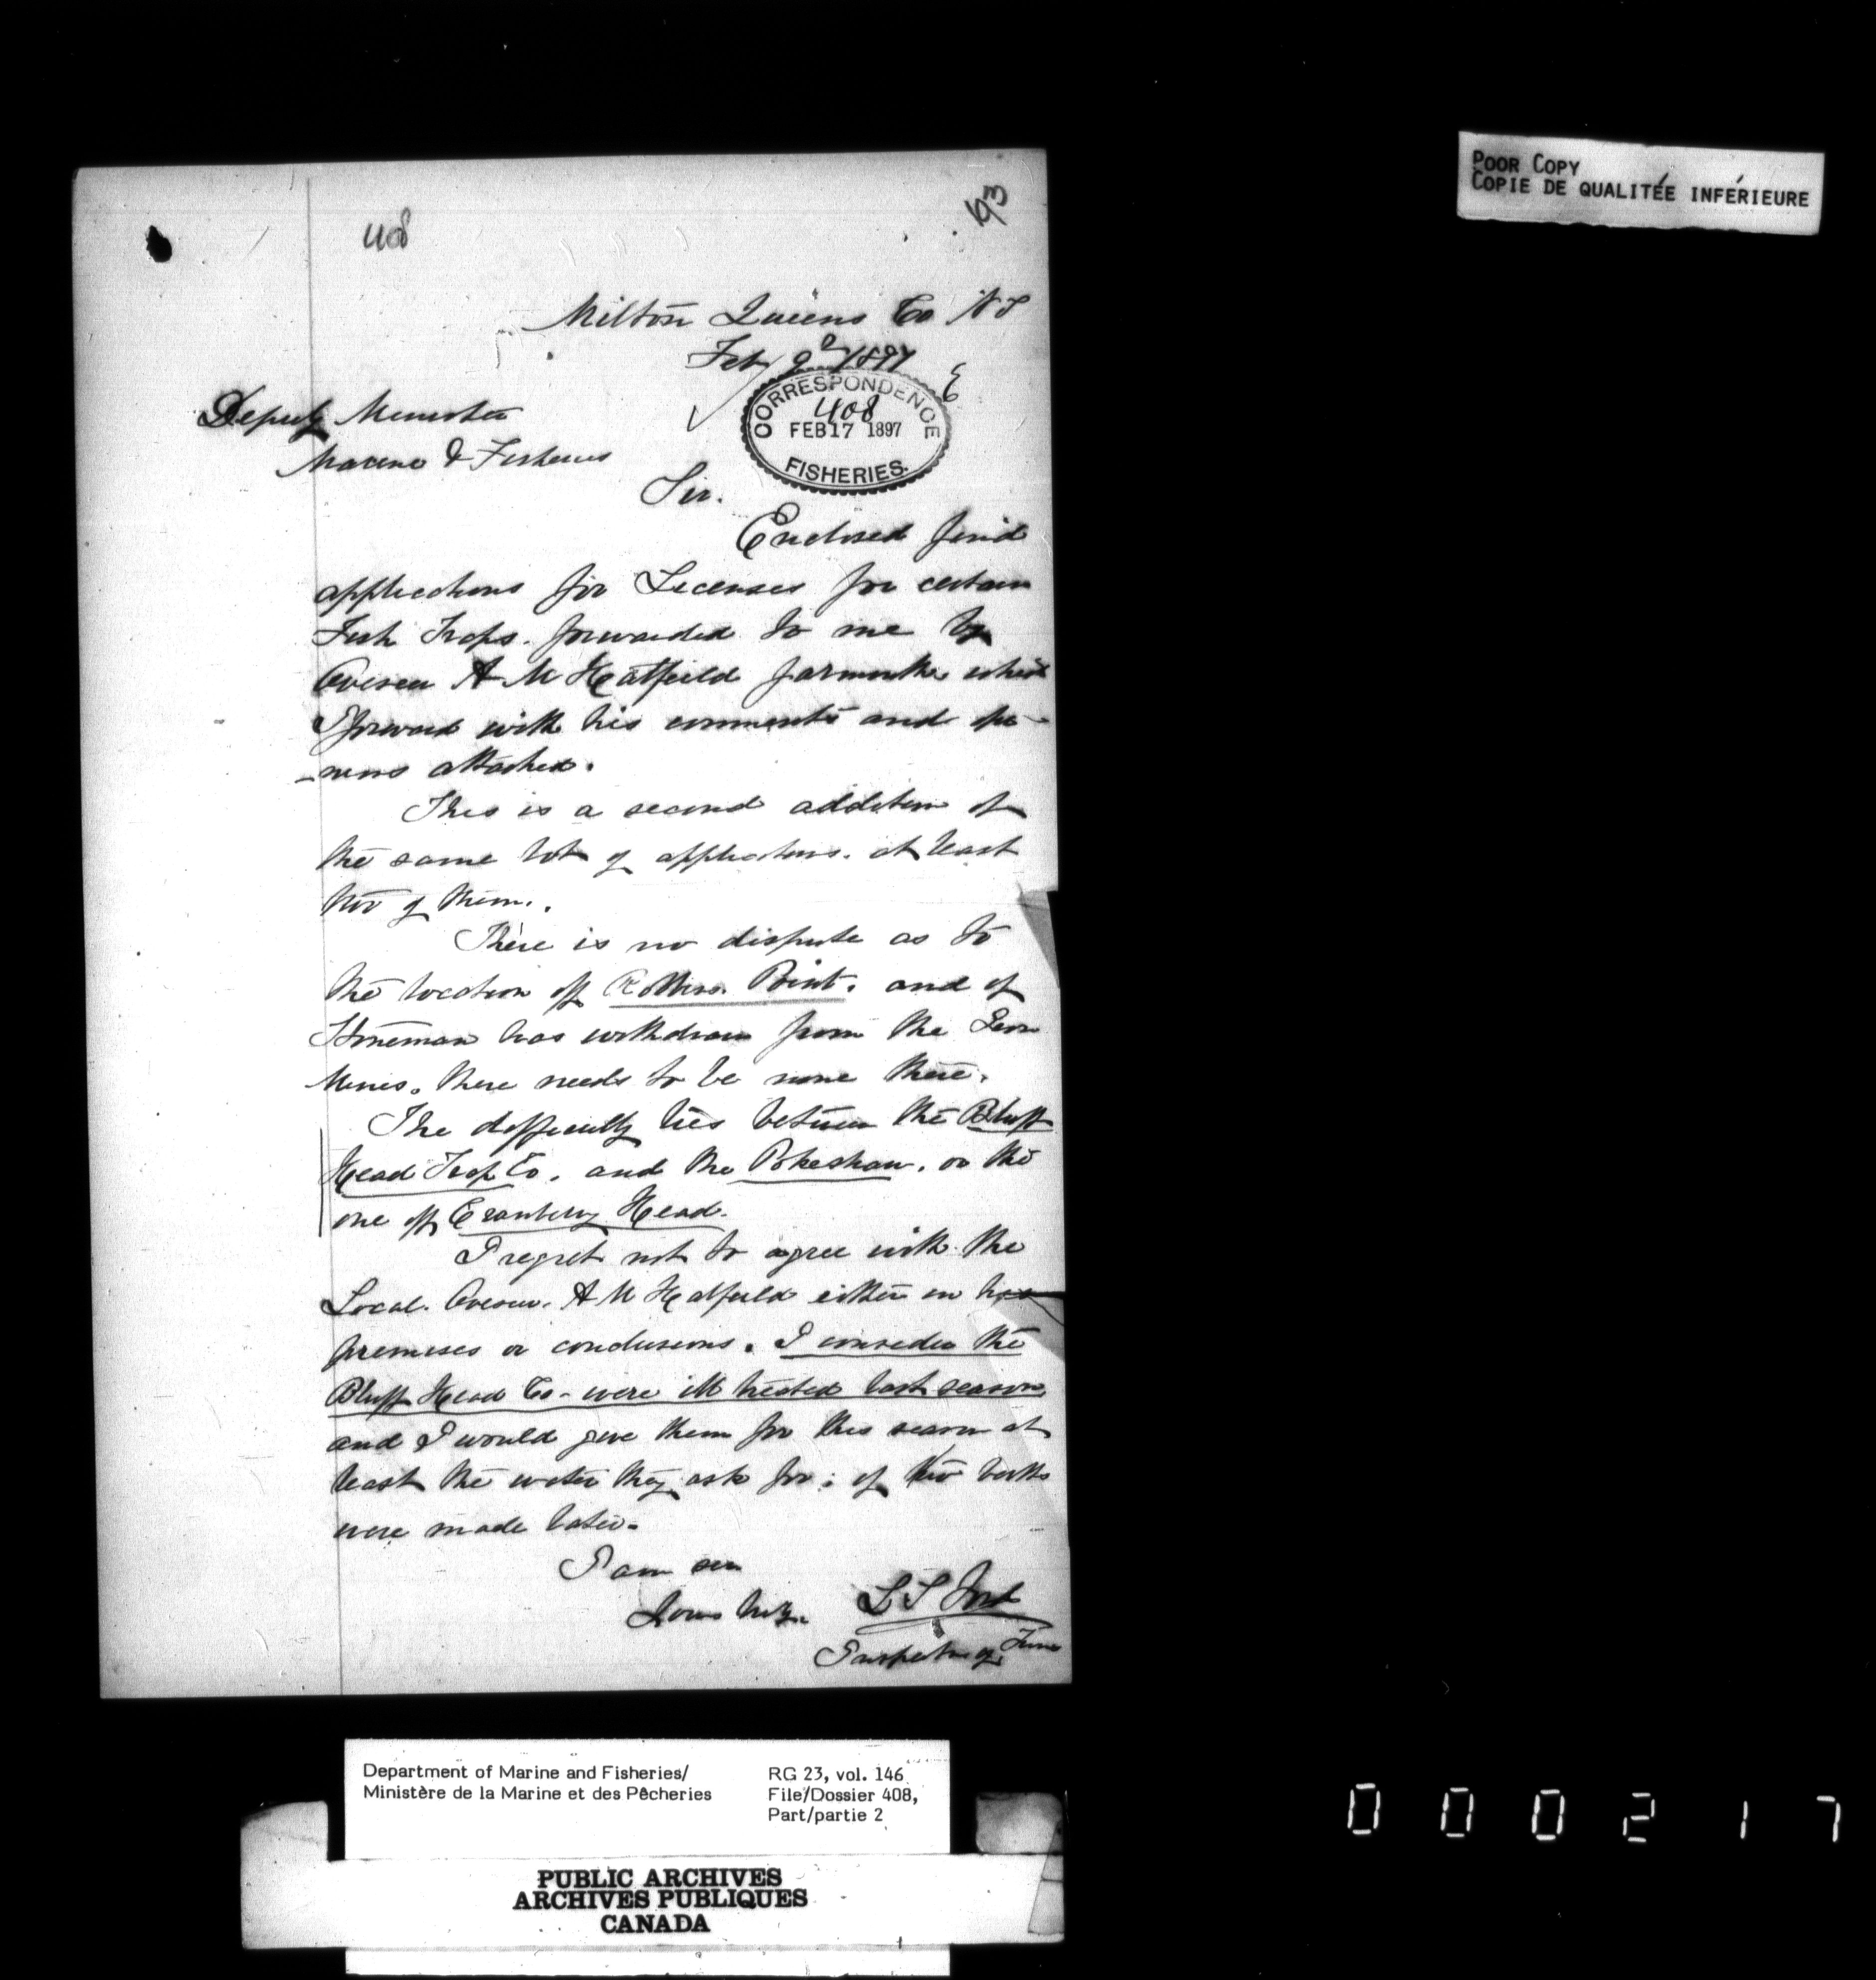 POOR COPY
COPIE DE QUALITÉE INFÉRIEURE
193
408
Milton Queens Co NS
Feb 9th 1897
CORRESPONDENCE
408
FEB 17 1897
FISHERIES.
Deputy Minister
Marine & Fisheries
Sir.
Enclosed find
applications for Licenses for certain
Fish Traps. forwarded to me by
Overseer A M Hatfield Yarmouth which
I forward with his comments and opi-
-nions attached.
This is a second addition of
the same lot of applications. at least
two of them.
There is no dispute as to
the location off Point. and if
Stoneman has withdrawn from the
Mines. there needs to be none there.
The difficulty lies between the Bluff
Head Trap Co. and the Pokeshaw. or the
one off Cranberry Head.
I regret not to agree with the
Local. Overseer. A M Hatfield either in his
premises or conclusions. I consider the
Bluff Head Co- were ill treated last season
and I would give them for this season at
least the water they ask for; if two berths
were made later.
I am sir
Yours truly. L S Ford
Inspector of
Department of Marine and Fisheries/
Ministère de la Marine et des Pêcheries
RG 23, vol. 146
File/Dossier 408,
Part/partie 2
PUBLIC ARCHIVES
ARCHIVES PUBLIQUES
CANADA
000217